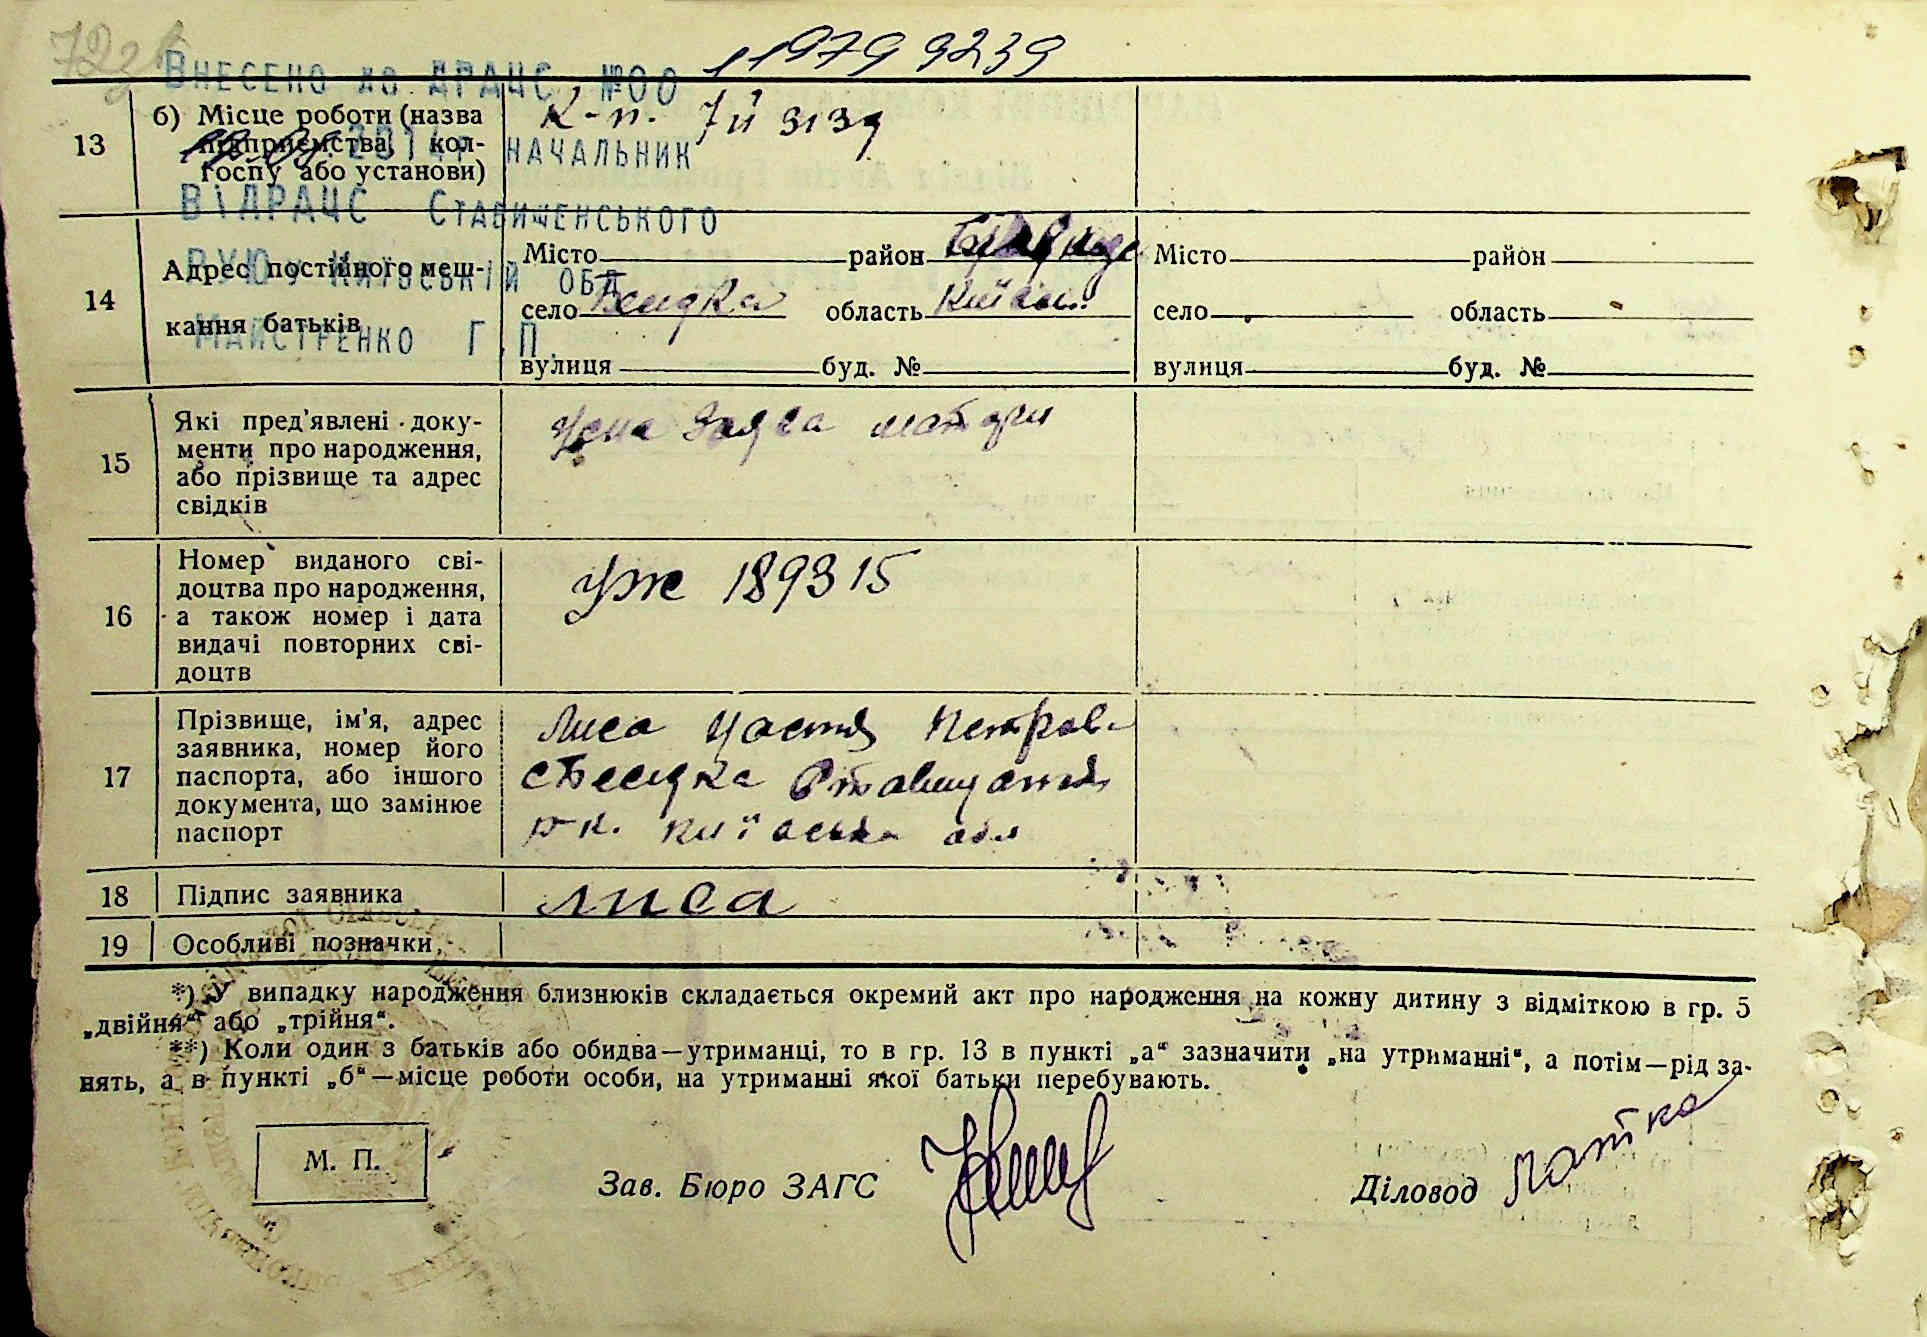 Внесено до ДРАЦС №00 119799239
13
б) Місце роботи (назва підприємства, колгоспу або установи)
К-п. 7й зізд
2014р. НАЧАЛЬНИК
ВіДРАЦС СТАВИЩЕНСЬКОГО
РУЮ у Київській обл
МАЙСТРЕНКО Г.П.
14
Адрес постійного мешкання батьків
Місто район Місто район
село Бесідка область Київськ. село область
вулиця буд. № вулиця буд. №
15
Які пред'явлені документи про народження, або прізвище та адрес свідків
Усна заява матери
16
Номер виданого свідоцтва про народження, а також номер і дата видачі повторних свідоцтв
УЖ 189315
17
Прізвище, ім'я, адрес заявника, номер його паспорта, або іншого документа, що замінює паспорт
Лиса Настя Петров.
с Бесідка Ставищанськ
р-н. Київська обл
18 Підпис заявника Лиса
19 Особливі позначки
*) У випадку народження близнюків складається окремий акт про народження на кожну дитину з відміткою в гр. 5
„двійня“ або „трійня“.
**) Коли один з батьків або обидва—утриманці, то в гр. 13 в пункті „а“ зазначити „на утриманні“, а потім—рід за-
нять, а в пункті „б“—місце роботи особи, на утриманні якої батьки перебувають.
М. П.
Зав. Бюро ЗАГС
Діловод